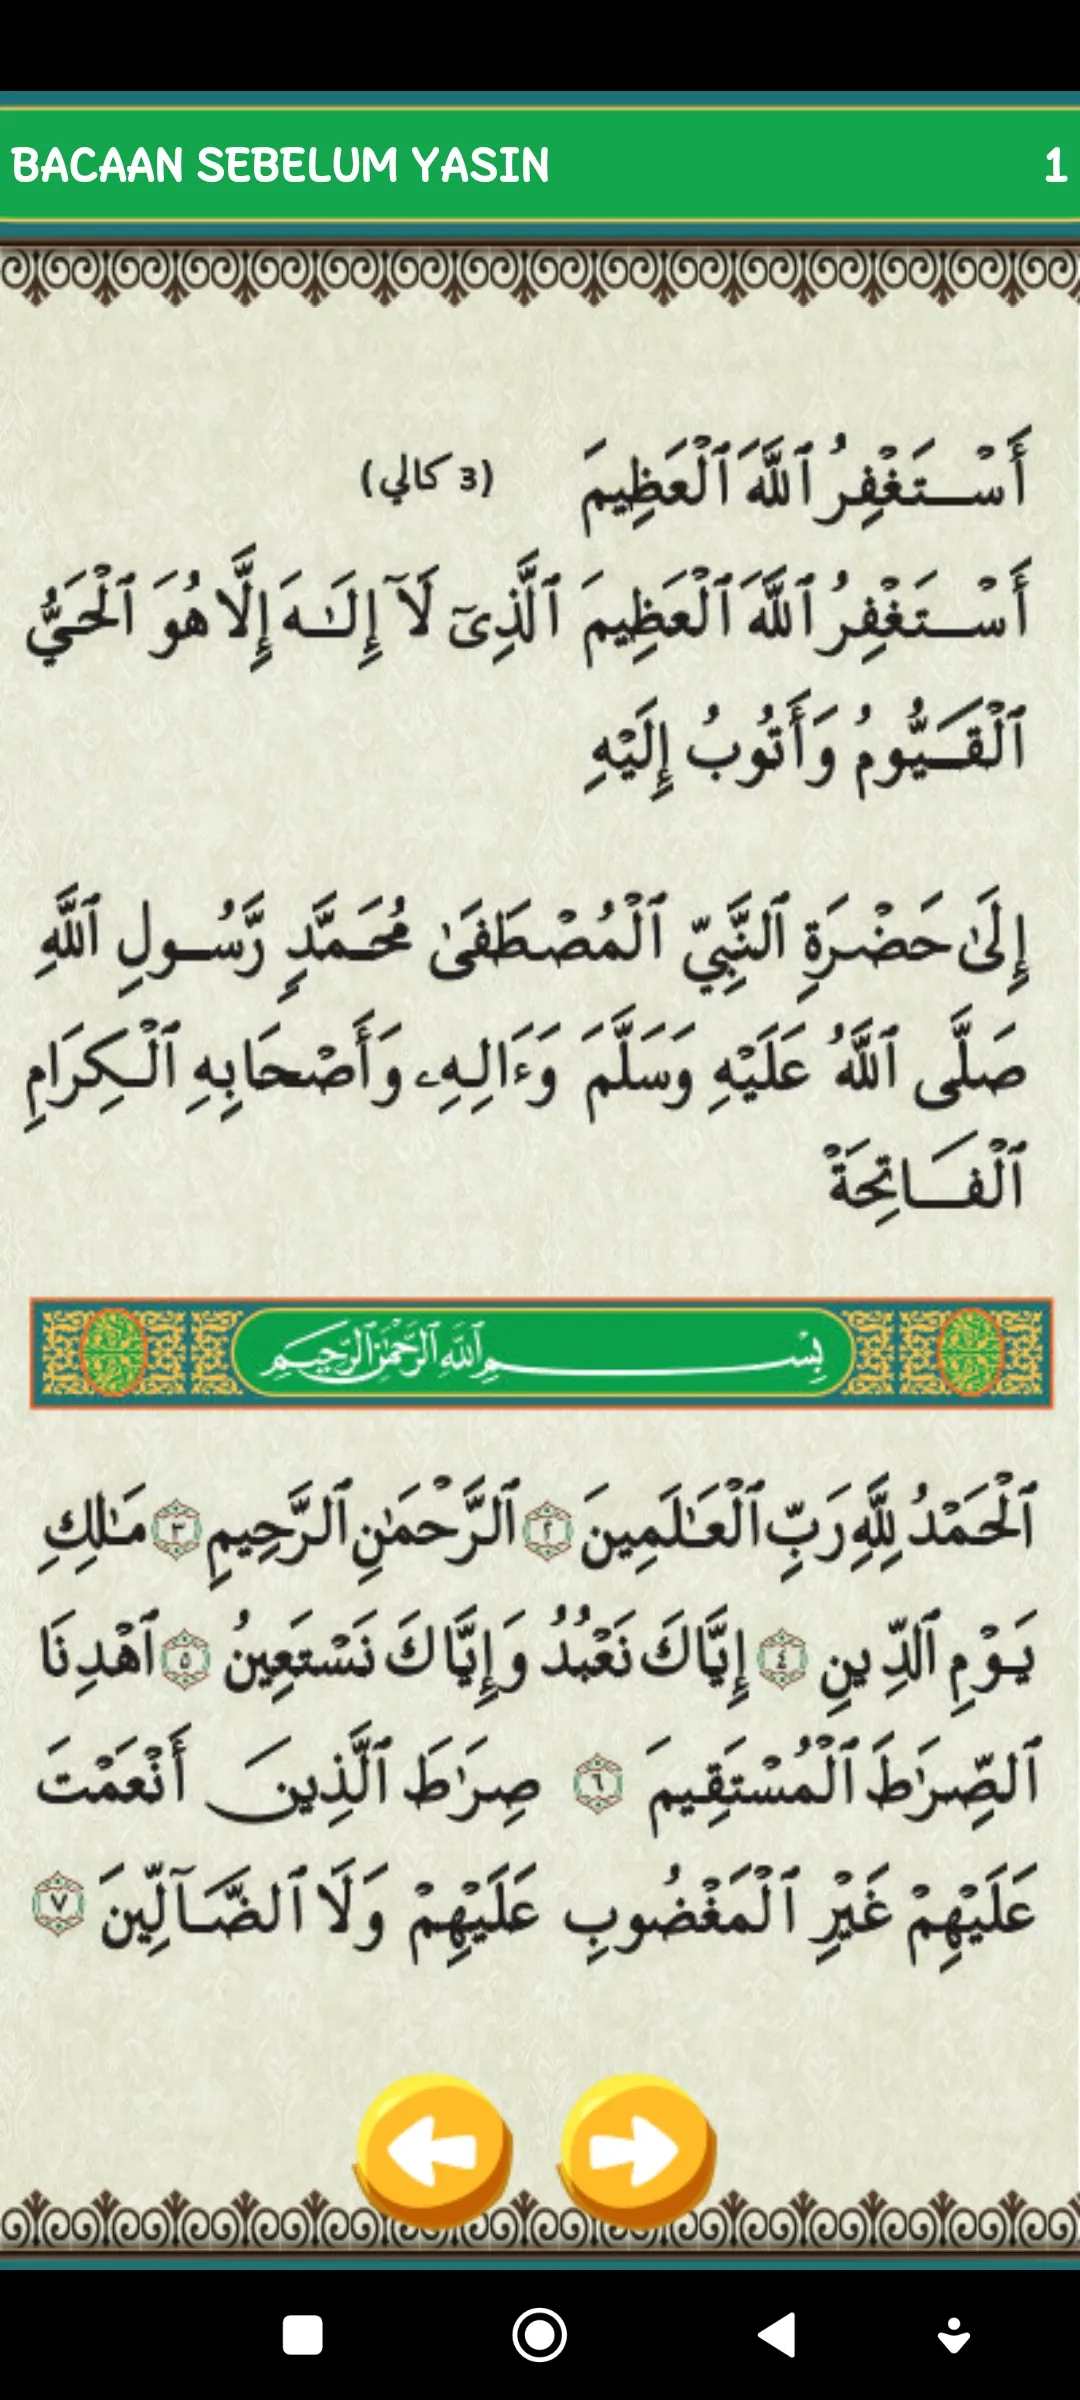 BACAAN SEBELUM YASIN 1
أَسْـتَغْفِرُ ٱللَّهَ ٱلْعَظِيمَ (3 كالي)
أَسْـتَغْفِرُ ٱللَّهَ ٱلْعَظِيمَ ٱلَّذِىٓ لَآ إِلَـٰهَ إِلَّا هُوَ ٱلْحَيُّ
ٱلْقَـيُّومُ وَأَتُوبُ إِلَيْهِ
إِلَىٰ حَضْرَةِ ٱلنَّبِيِّ ٱلْمُصْطَفَىٰ مُحَـمَّدٍ رَّسُـولِ ٱللَّهِ
صَلَّى ٱللَّهُ عَلَيْهِ وَسَلَّمَ وَءَالِـهِۦ وَأَصْحَابِهِ ٱلْـكِرَامِ
ٱلْفَـاتِحَةْ
بِسْــمِ ٱللَّهِ ٱلرَّحْمَٰنِ ٱلرَّحِيمِ
ٱلْحَمْدُ لِلَّهِ رَبِّ ٱلْعَـٰلَمِينَ ٢ ٱلرَّحْمَٰنِ ٱلرَّحِيمِ ٣ مَـٰلِكِ
يَـوْمِ ٱلدِّينِ ٤ إِيَّاكَ نَعْبُدُ وَإِيَّاكَ نَسْتَعِينُ ٥ ٱهْدِنَا
ٱلصِّرَٰطَ ٱلْمُسْتَقِيمَ ٦ صِرَٰطَ ٱلَّذِينَ أَنْعَمْتَ
عَلَيْهِمْ غَيْرِ ٱلْمَغْضُوبِ عَلَيْهِمْ وَلَا ٱلضَّـآلِّينَ ٧